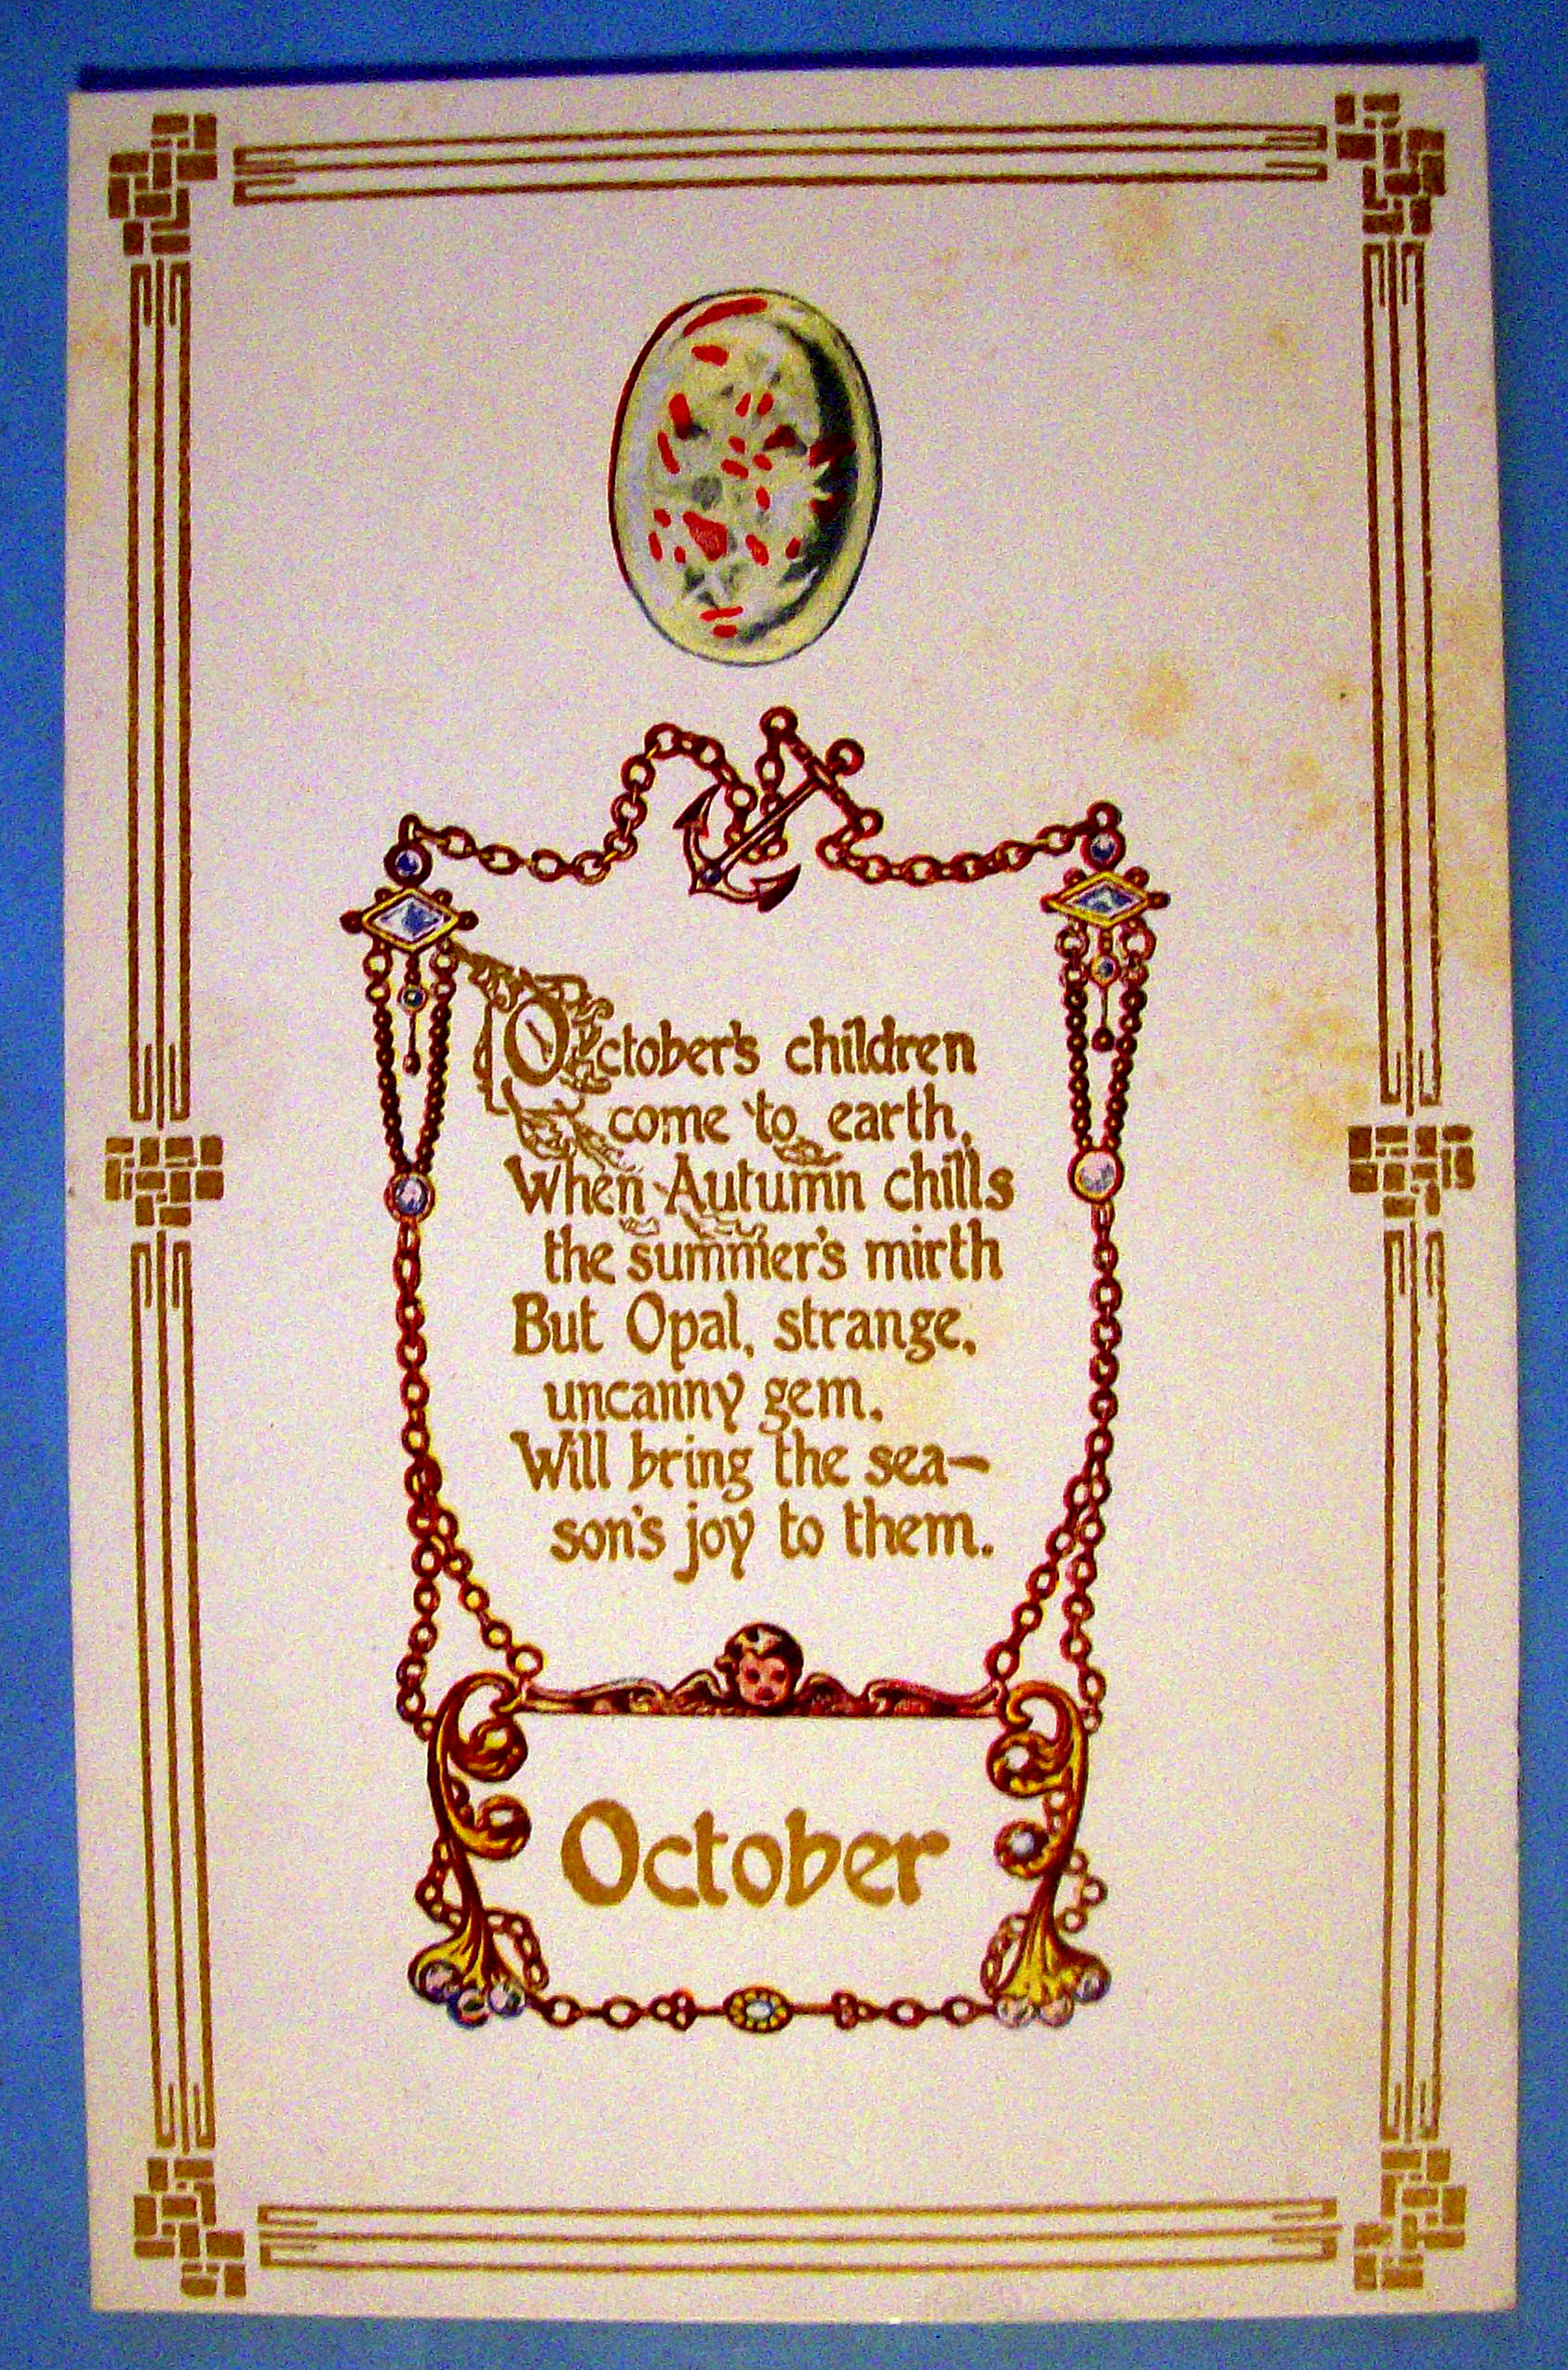 October's children
come to earth,
When Autumn chills
the summer's mirth
But Opal, strange,
uncanny gem,
Will bring the sea-
son's joy to them.
October